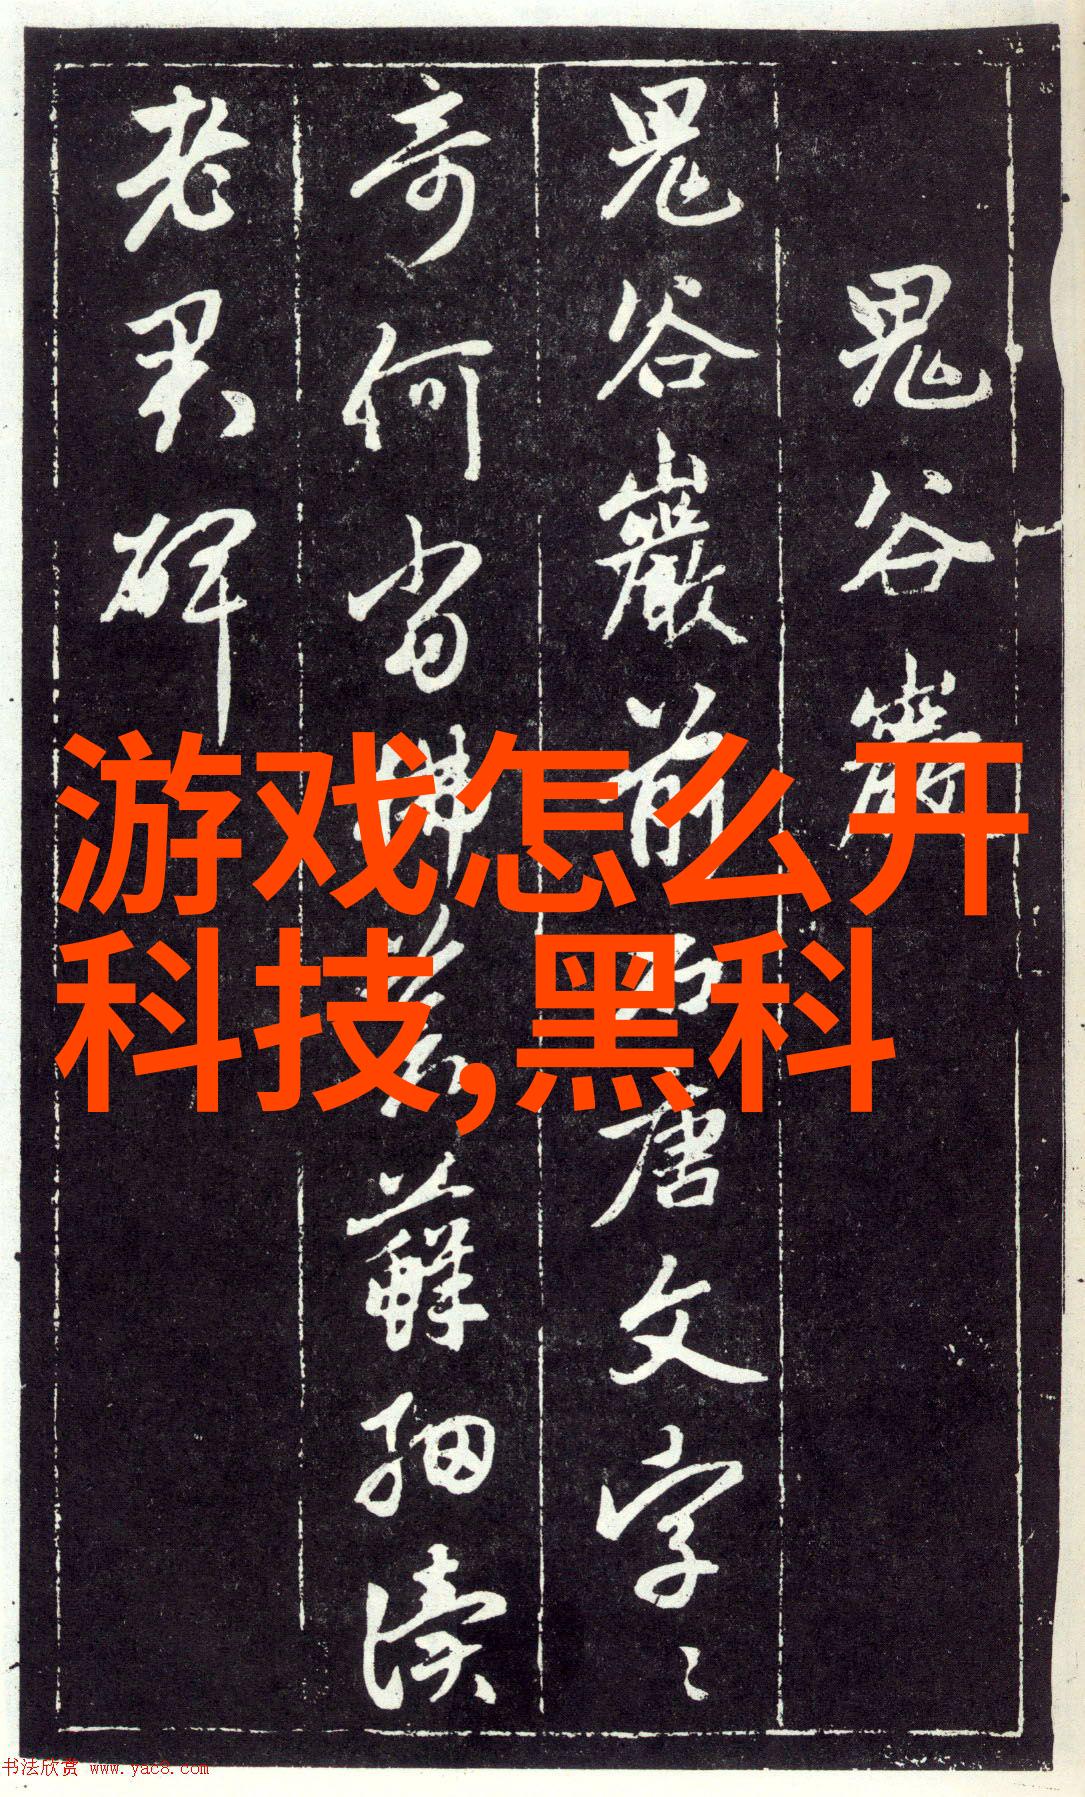 鬼谷
鬼谷巖前石唐文字〻
奇何當拂蒼蘚細讀
老君碑
游戏怎么开
科技,黑科
书法欣赏 www.yac8.com